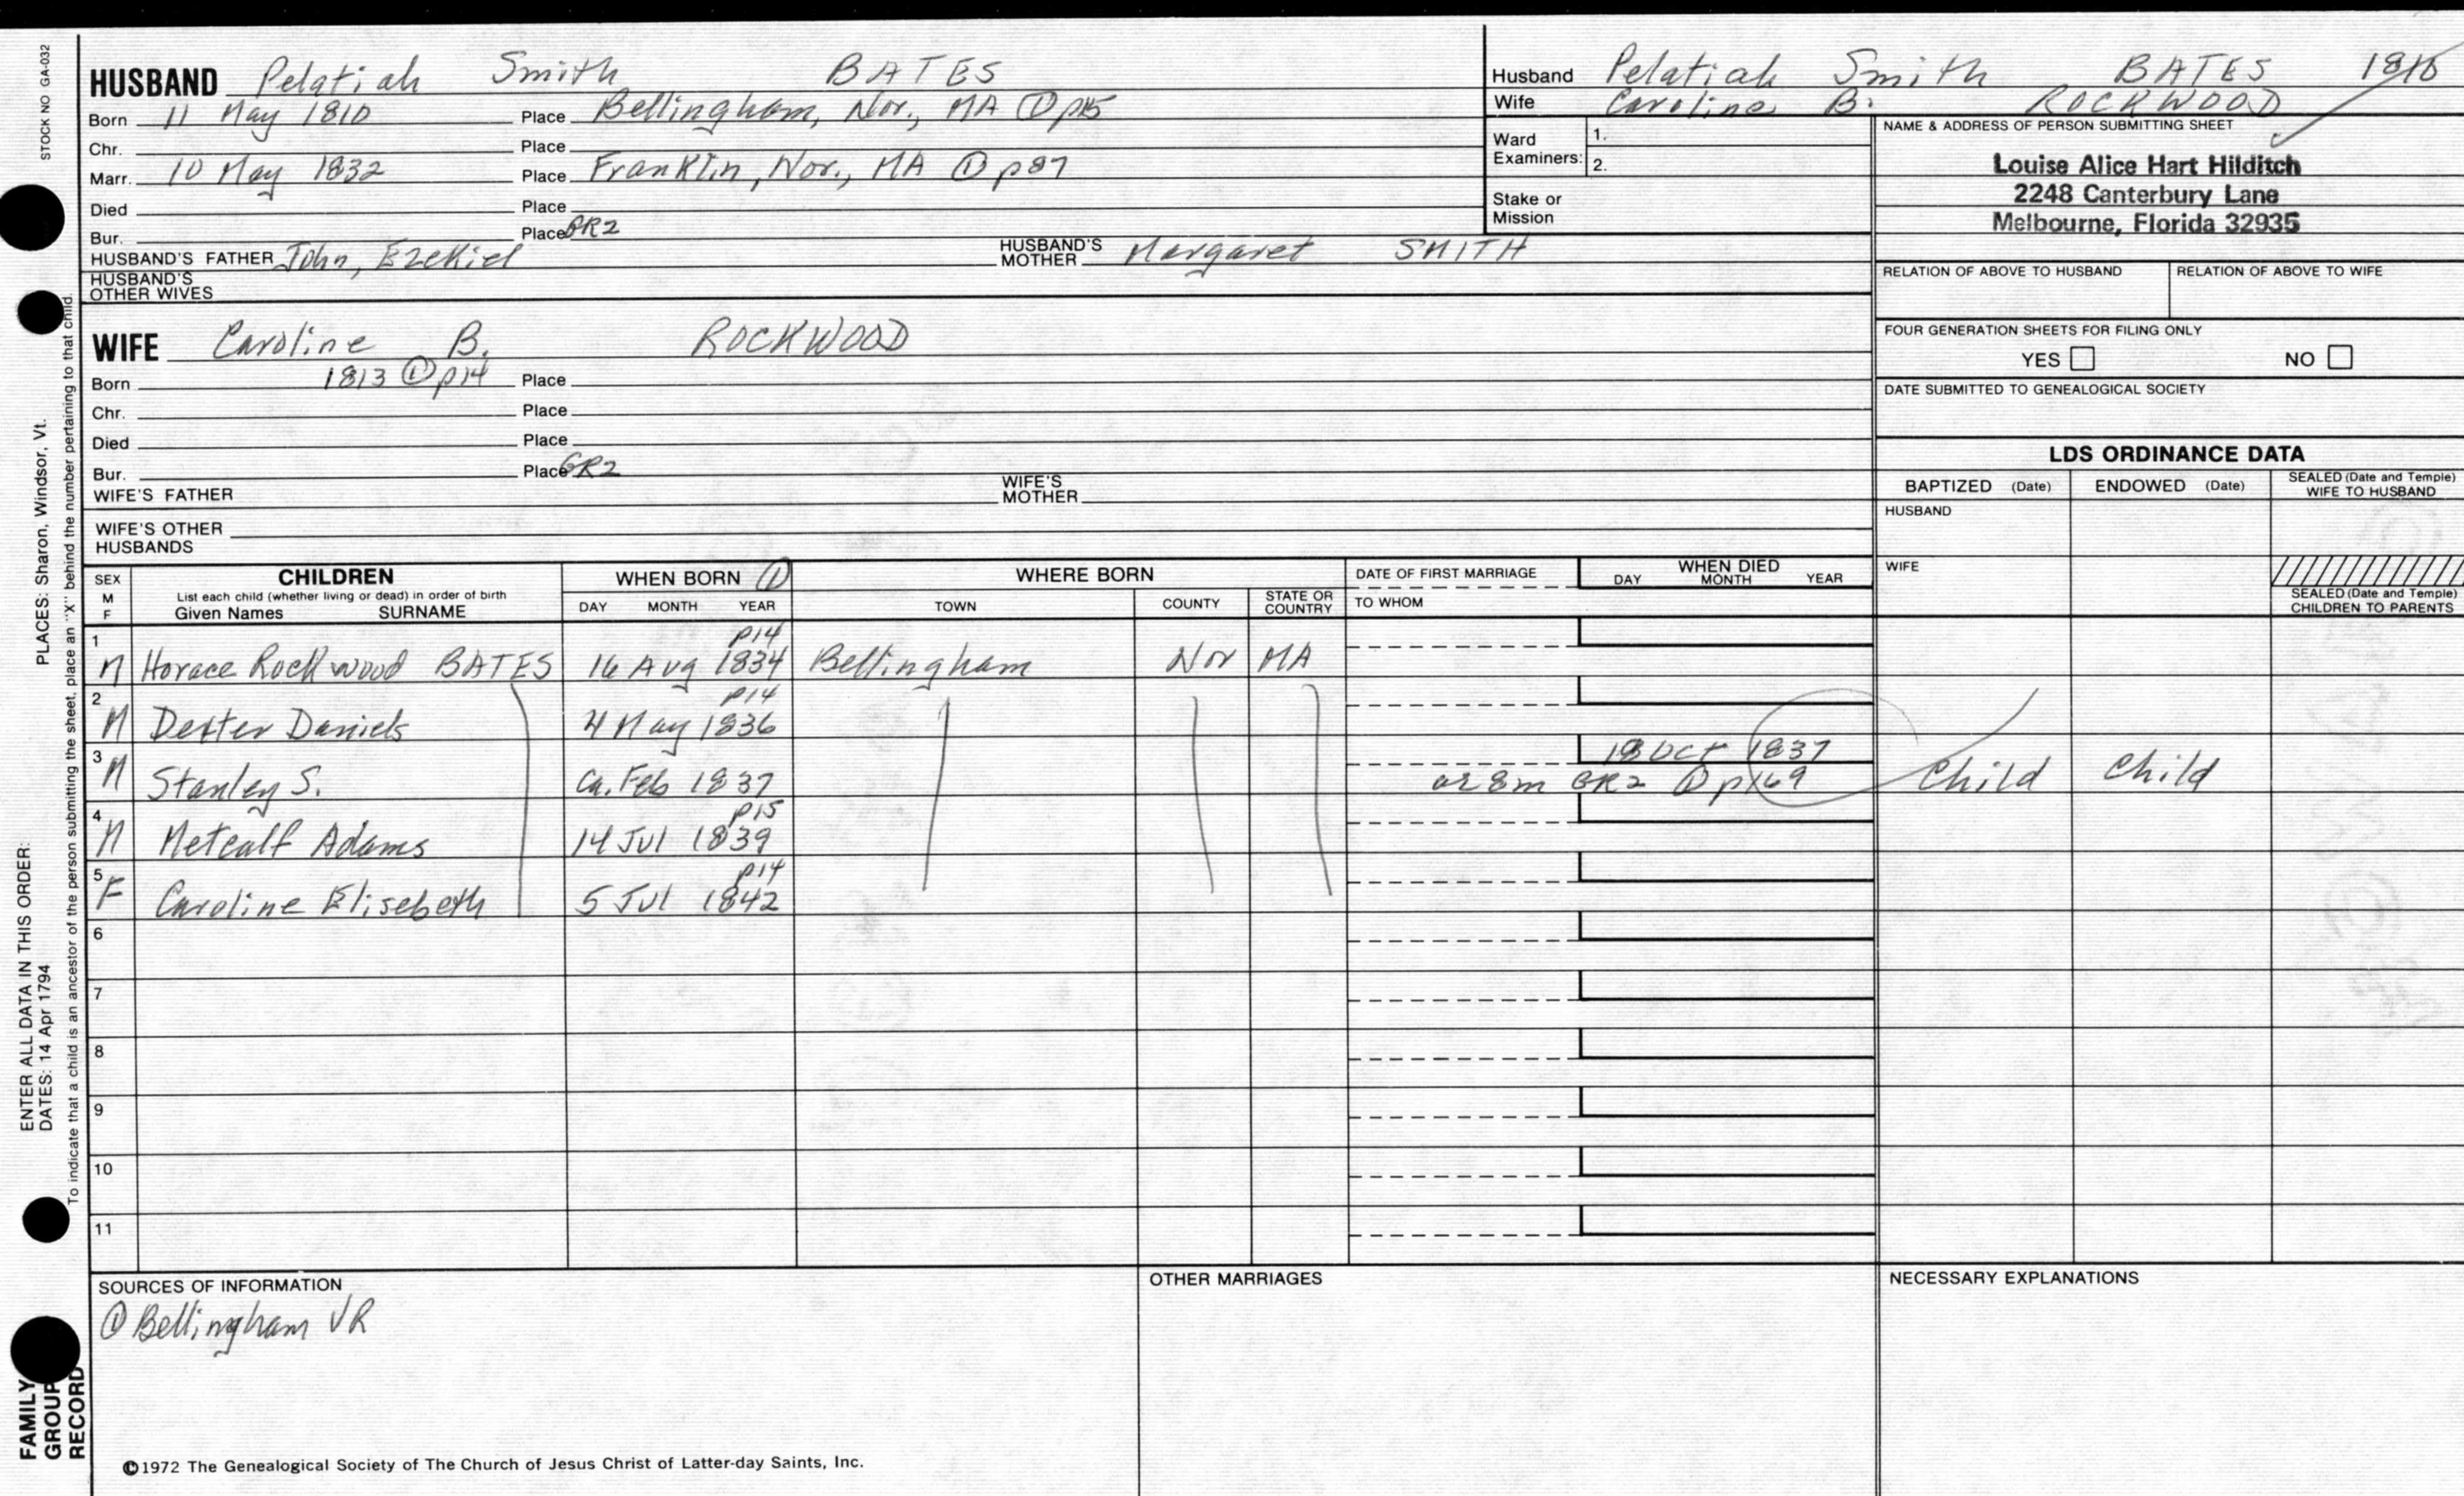 STOCK NO GA-032
HUSBAND Pelatiah Smith BATES
Born 11 May 1810 Place Bellingham, Nor., MA ① p15
Chr. Place
Marr. 10 May 1832 Place Franklin, Nor., MA ① p87
Died Place
Bur. Place GR2
HUSBAND'S FATHER John, Ezekiel HUSBAND'S MOTHER Margaret SMITH
HUSBAND'S
OTHER WIVES
WIFE Caroline B. ROCKWOOD
Born 1813 ① p14 Place
Chr. Place
Died Place
Bur. Place GR2
WIFE'S FATHER WIFE'S MOTHER
WIFE'S OTHER
HUSBANDS
Husband Pelatiah Smith BATES 1810
Wife Caroline B. ROCKWOOD
Ward
Examiners: 1.
2.
Stake or
Mission
NAME & ADDRESS OF PERSON SUBMITTING SHEET
Louise Alice Hart Hilditch
2248 Canterbury Lane
Melbourne, Florida 32935
RELATION OF ABOVE TO HUSBAND RELATION OF ABOVE TO WIFE
FOUR GENERATION SHEETS FOR FILING ONLY
YES NO
DATE SUBMITTED TO GENEALOGICAL SOCIETY
LDS ORDINANCE DATA
BAPTIZED (Date) ENDOWED (Date) SEALED (Date and Temple)
WIFE TO HUSBAND
HUSBAND
WIFE
SEALED (Date and Temple)
CHILDREN TO PARENTS
SEX
M
F
CHILDREN
List each child (whether living or dead) in order of birth
Given Names SURNAME
WHEN BORN ①
DAY MONTH YEAR
WHERE BORN
TOWN COUNTY STATE OR COUNTRY
DATE OF FIRST MARRIAGE
TO WHOM
WHEN DIED
DAY MONTH YEAR
1 p14
M Horace Rockwood BATES 16 Aug 1834 Bellingham Nor MA
2 p14
M Dexter Daniels 4 May 1836
3 18 Oct 1837
M Stanley S. ca. Feb 1837 ae 8m GR2 ① p169 Child Child
4 p15
M Metcalf Adams 14 Jul 1839
5 p14
F Caroline Elisebeth 5 Jul 1842
6
7
8
9
10
11
SOURCES OF INFORMATION
① Bellingham VR
OTHER MARRIAGES
NECESSARY EXPLANATIONS
©1972 The Genealogical Society of The Church of Jesus Christ of Latter-day Saints, Inc.
ENTER ALL DATA IN THIS ORDER:
DATES: 14 Apr 1794
PLACES: Sharon, Windsor, Vt.
To indicate that a child is an ancestor of the person submitting the sheet, place an "X" behind the number pertaining to that child.
FAMILY
GROUP
RECORD